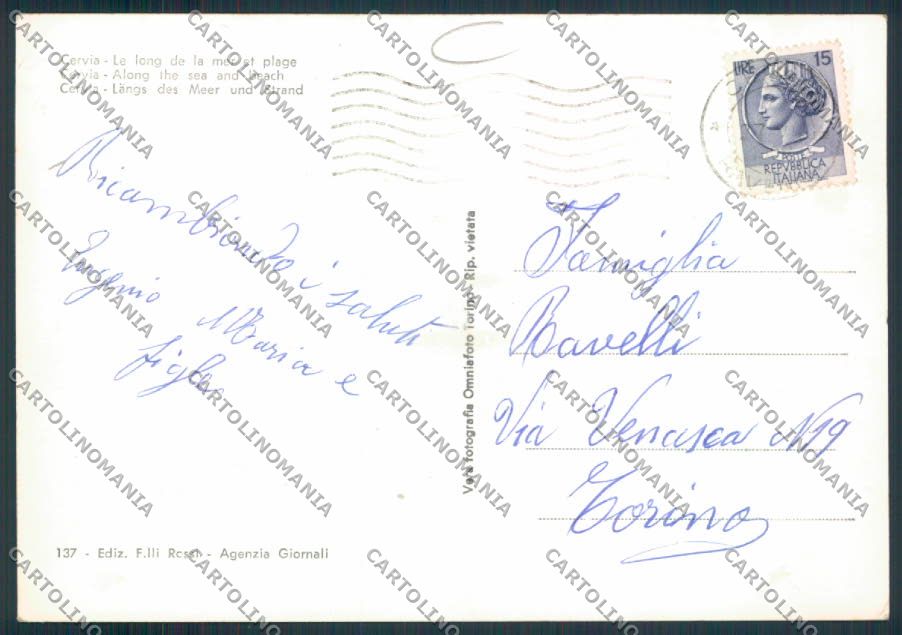 Cervia - Le long de la mer et plage
Cervia - Along the sea and beach
Cervia - Längs des Meer und Strand
LIRE 15
POSTE
REPVBBLICA
ITALIANA
Ricambiando i saluti
Eugenio Maria e
figlie
Vera fotografia Omniafoto Torino - Rip. vietata
Famiglia
Bavelli
Via Venasca N 19
Torino
137 - Ediz. F.lli Rossi - Agenzia Giornali
CARTOLINOMANIA